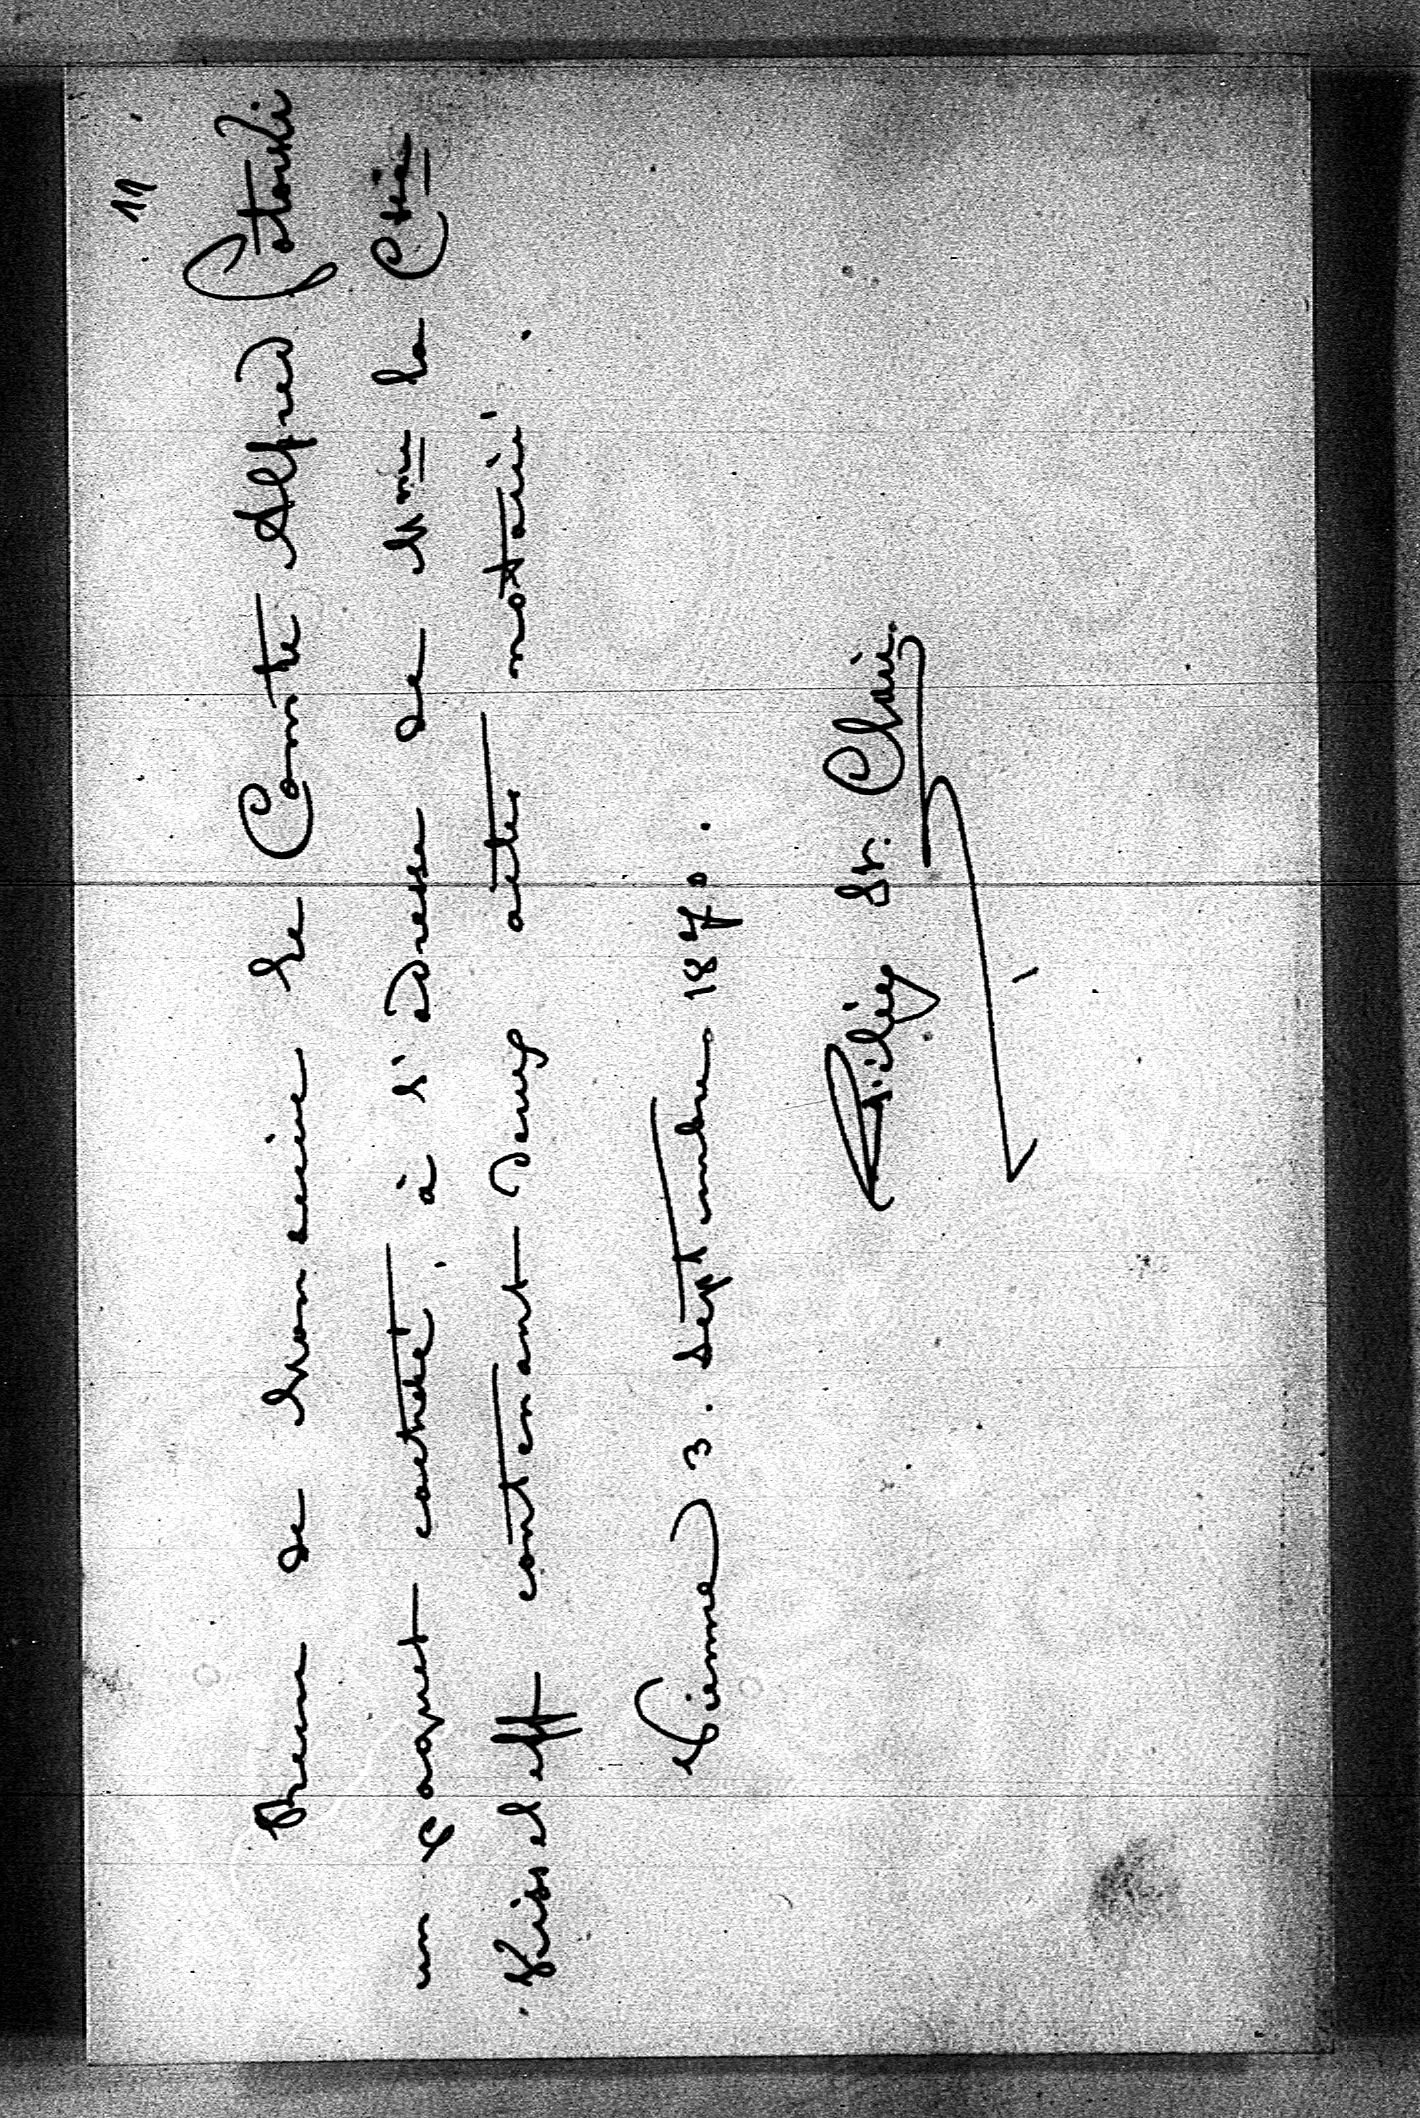 11
Reçu de Monsieur le Comte Alfred Potocki
un paquet cacheté, à l'adresse de Mme la Ctsse
Kisseleff contenant deux actes notariés.
Vienne 3. Septembre 1870.